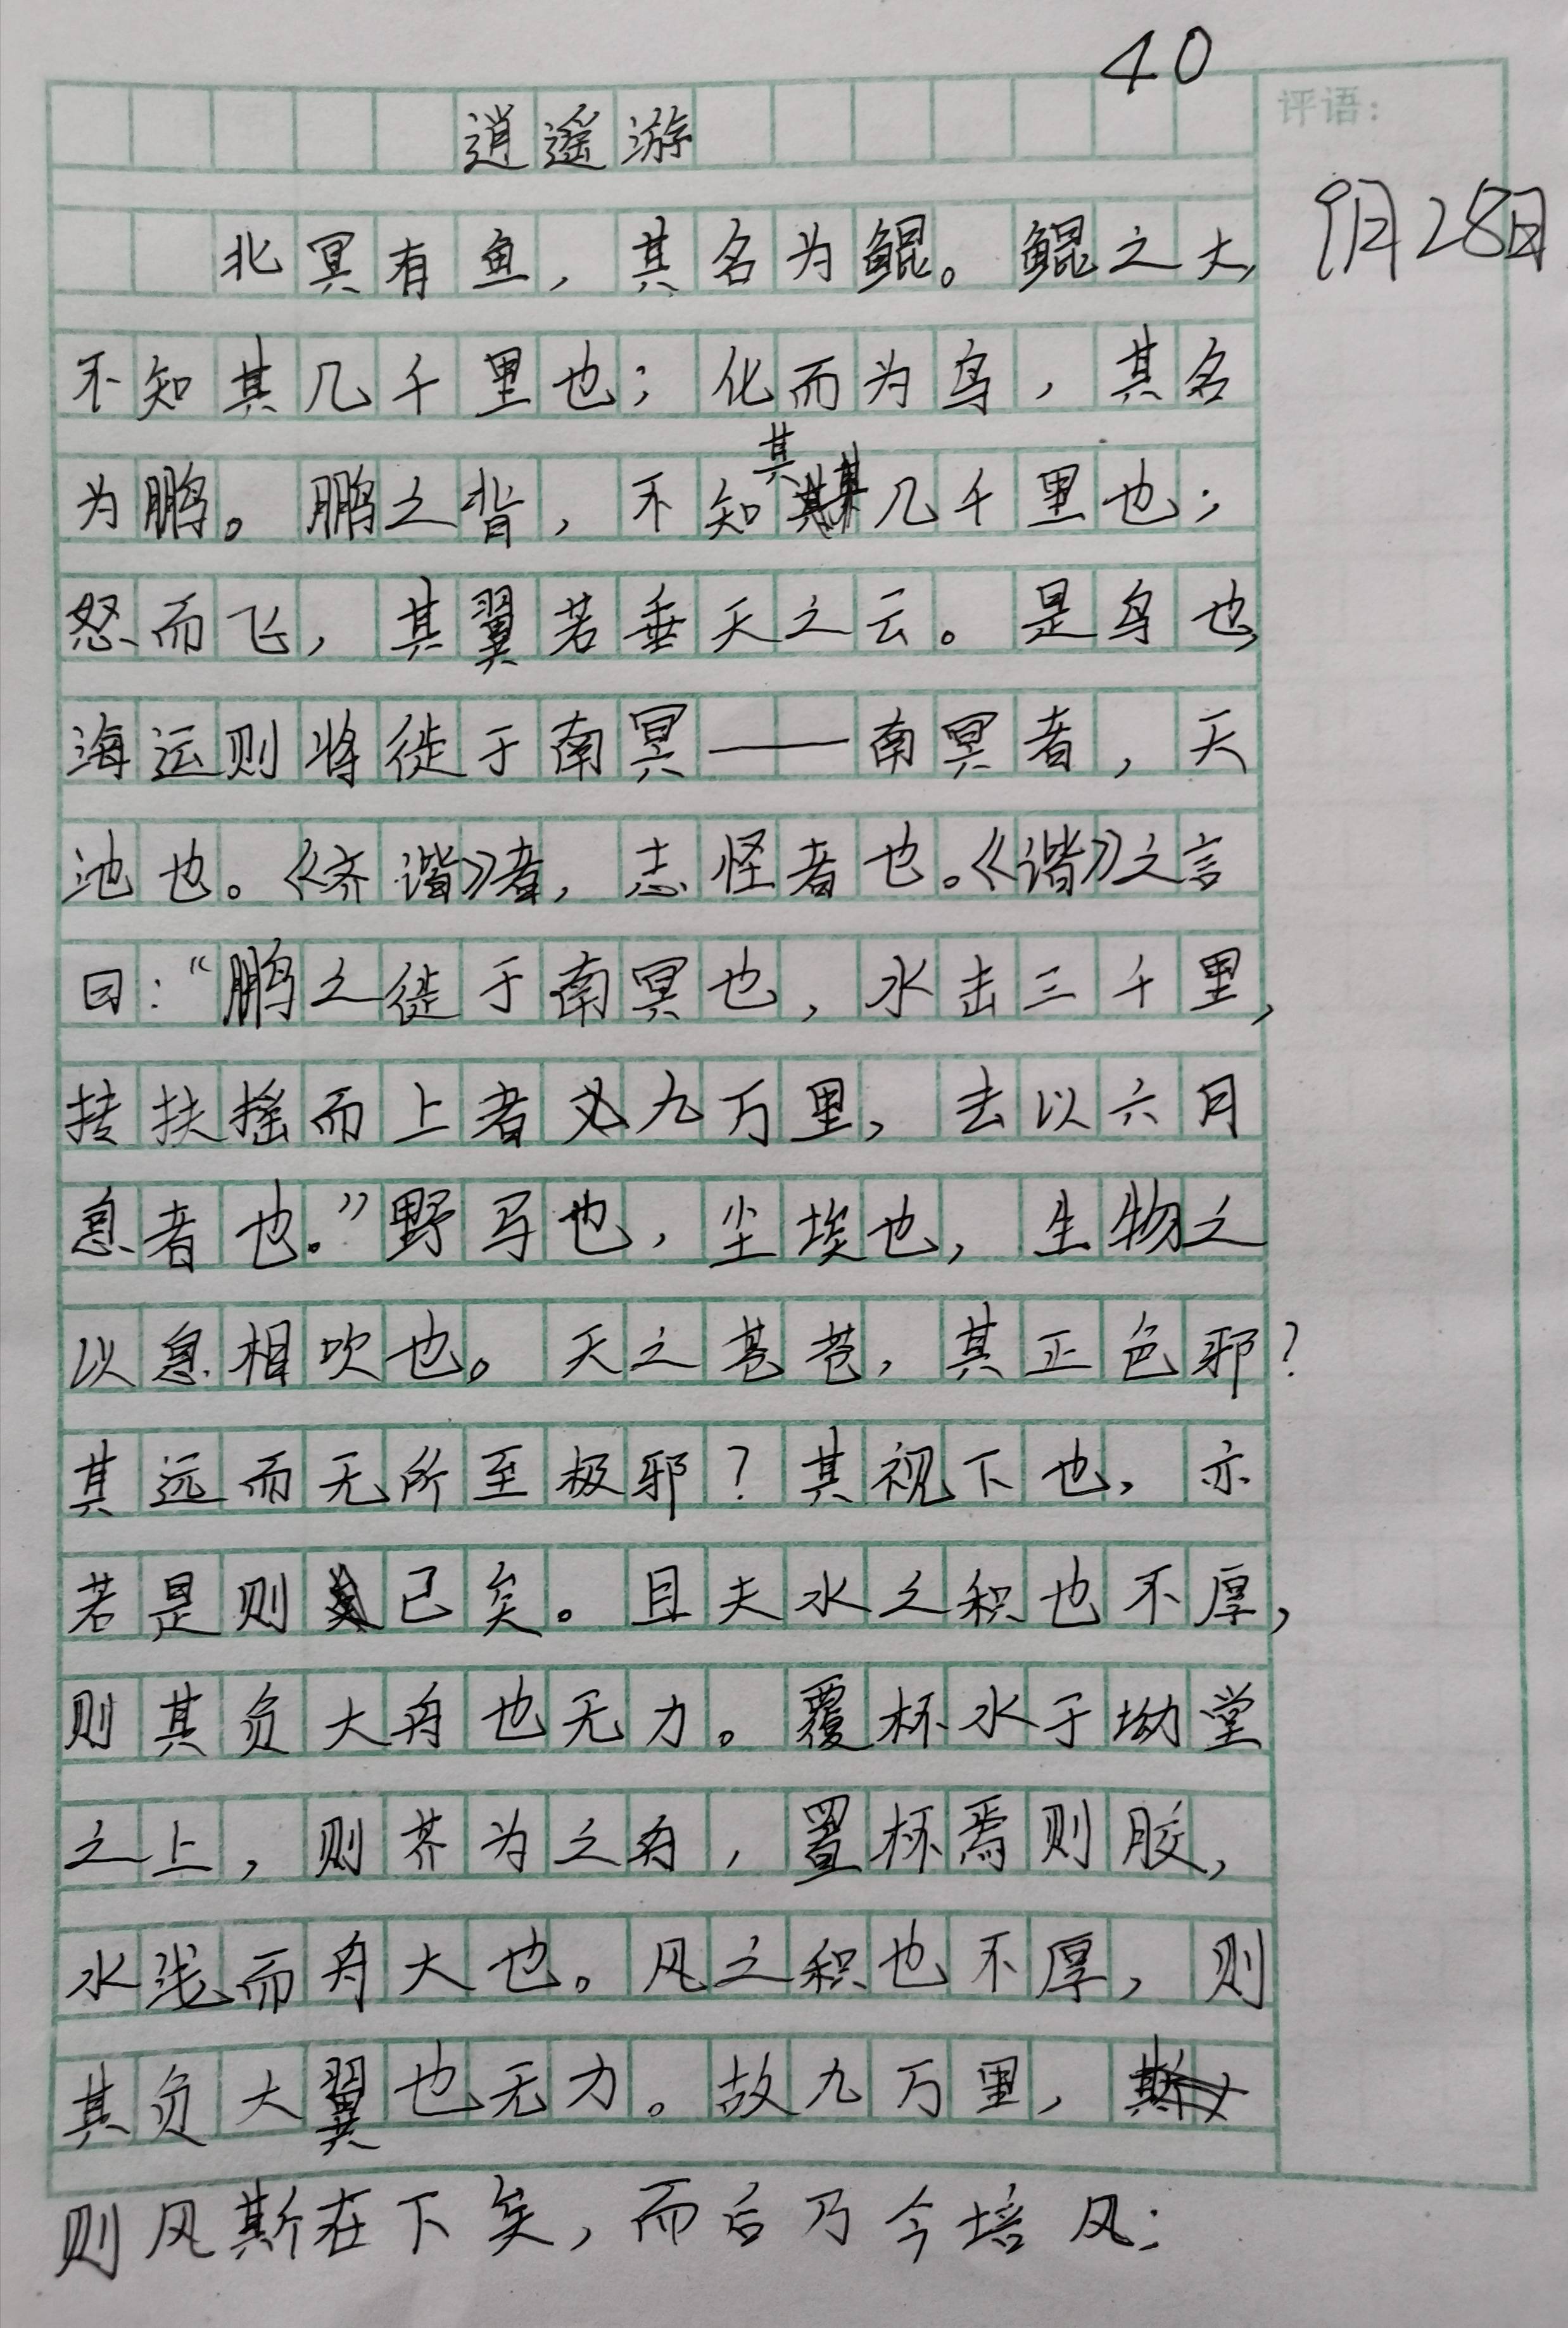 40
逍遥游
评语:
9月28日
北冥有鱼，其名为鲲。鲲之大，
不知其几千里也；化而为鸟，其名
为鹏。鹏之背，不知其几千里也；
怒而飞，其翼若垂天之云。是鸟也，
海运则将徙于南冥——南冥者，天
池也。《齐谐》者，志怪者也。《谐》之言
曰：“鹏之徙于南冥也，水击三千里，
抟扶摇而上者九万里，去以六月
息者也。”野马也，尘埃也，生物之
以息相吹也。天之苍苍，其正色邪？
其远而无所至极邪？其视下也，亦
若是则已矣。且夫水之积也不厚，
则其负大舟也无力。覆杯水于坳堂
之上，则芥为之舟，置杯焉则胶，
水浅而舟大也。风之积也不厚，则
其负大翼也无力。故九万里，
则风斯在下矣，而后乃今培风；